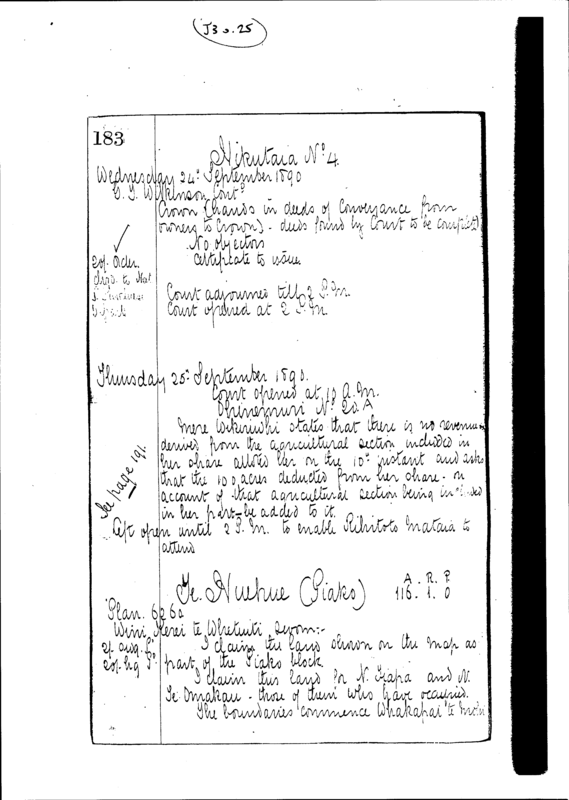 J3 o. 25
183
Hikutaia No 4.
Wednesday 24th September 1890
C. J. Wilkinson Cont
Crown (hands in deeds of Conveyance from
owners to Crown) - deeds found by Court to be complete)
No objectors
Certificate to issue
20/- Order.
Court adjourned till 2 P.M.
Court opened at 2 P.M.
Thursday 25th September 1890.
Court opened at 10 A.M.
Ohinemuri No 20. A
Mere Wikiriwhi states that there is no revenue
derived from the agricultural section included in
her share alloted her on the 10th instant and asks
that the 100 acres deducted from her share - on
account of that agricultural section being included
in her part - be added to it.
See page 191.
Left open until 2 P.M. to enable Rihitoto Mataia to
attend
Te Huehue (Piako)
A. R. P
116. 1. 0
Plan. 6260
Wini Kerei te Whetuiti sworn:-
I claim the land shown on the map as
part of the Piako block.
I claim this land for N. and N.
Te - those of them who have occupied.
The boundaries commence Whakapai te